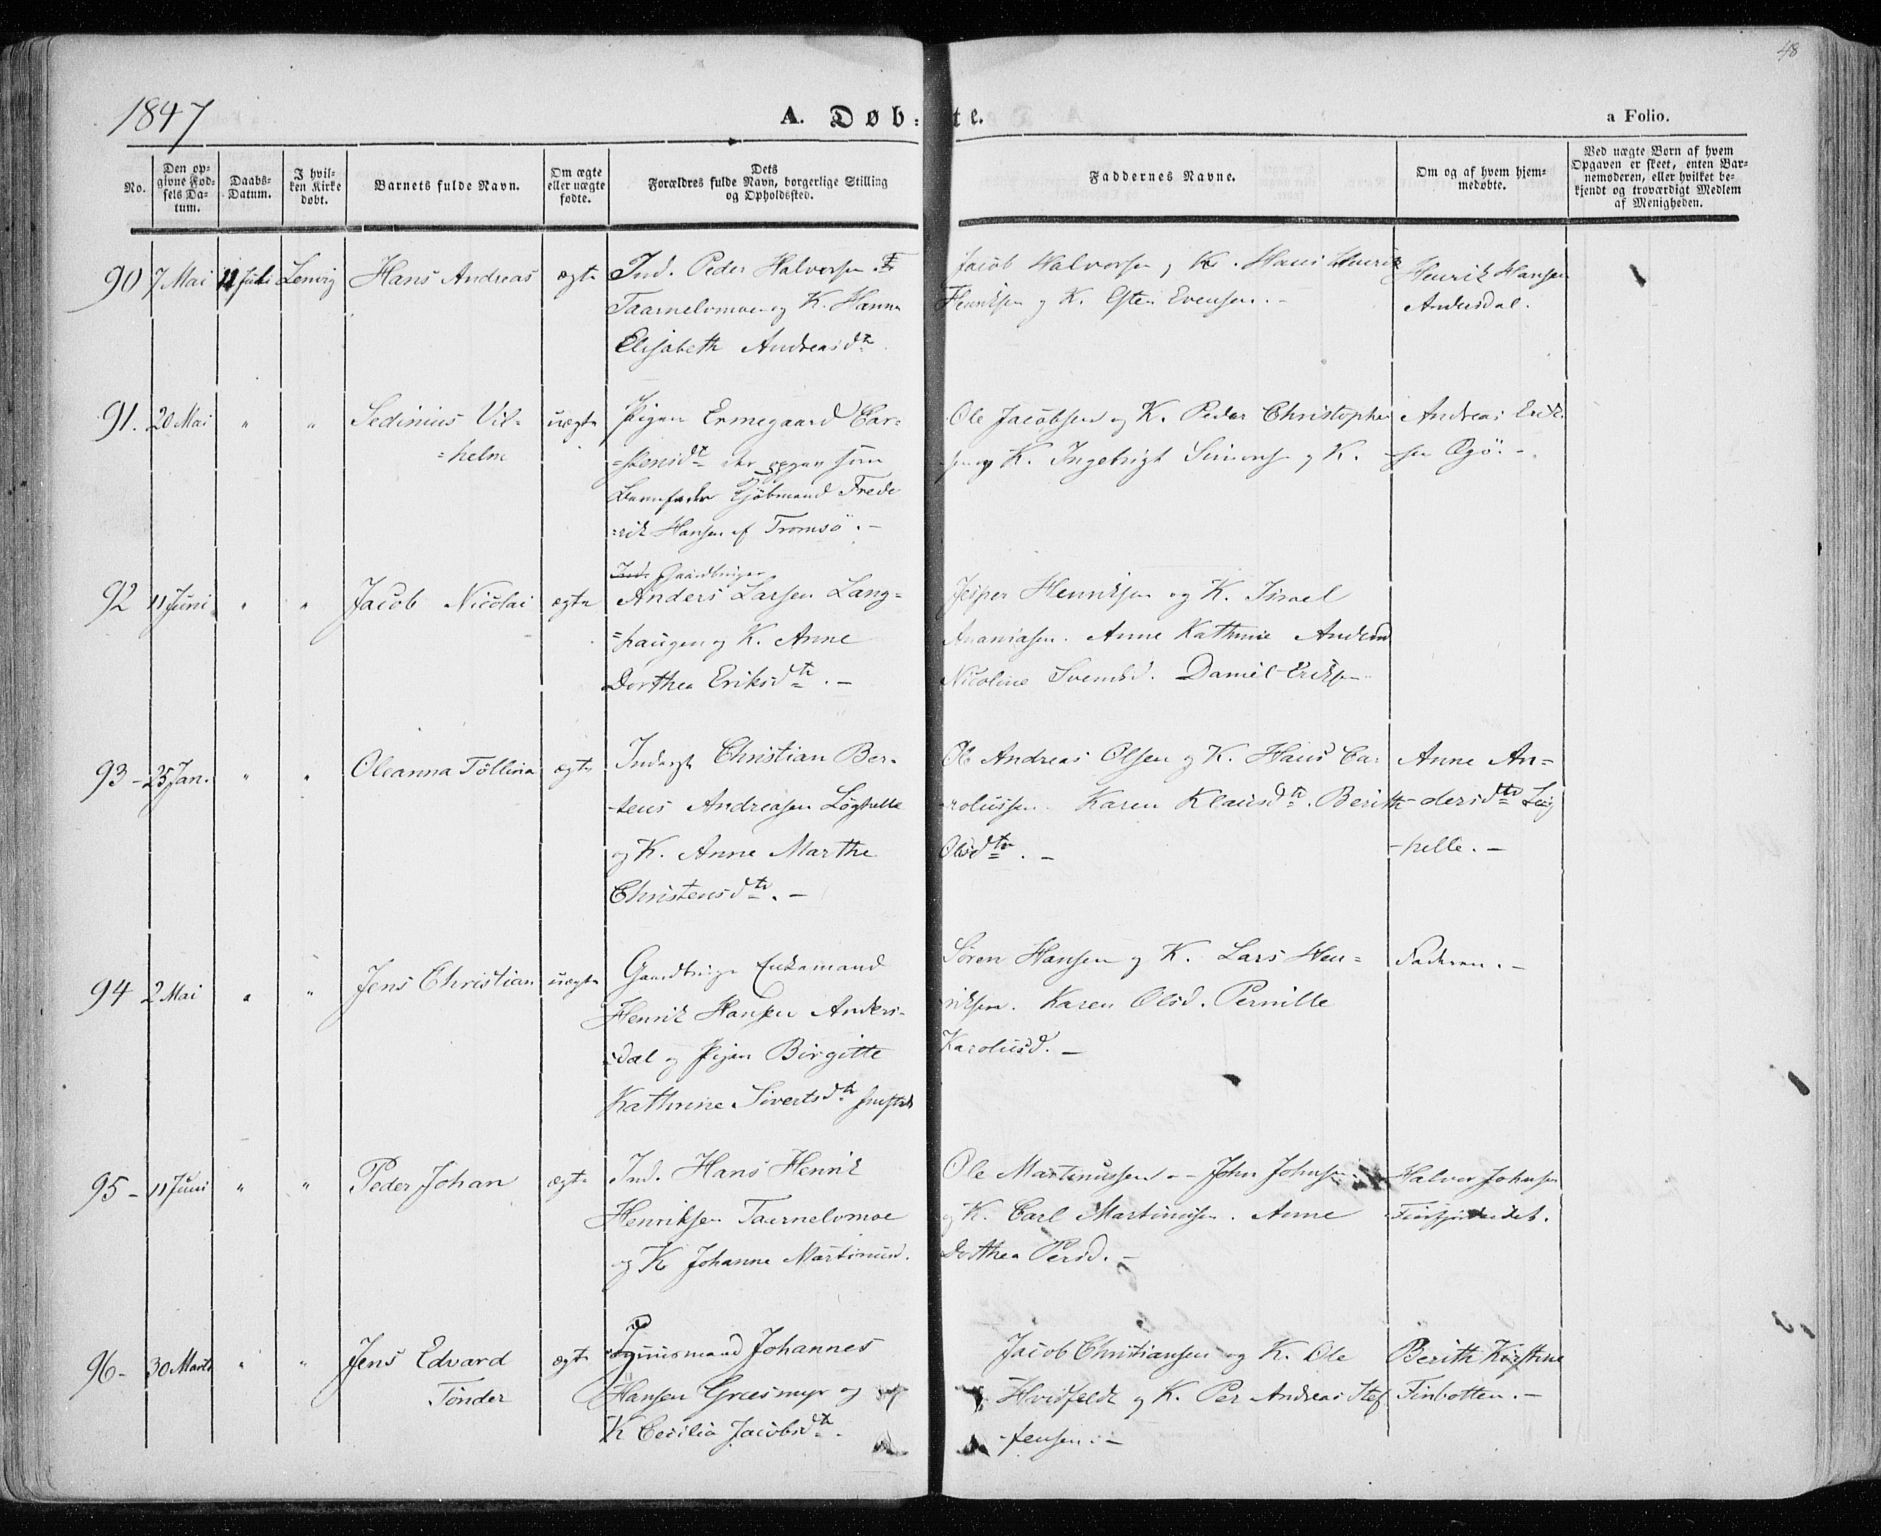 48
1847
A. Døb=te.
a Folio.
No.
Den op-
givne Fød-
sels Da-
tum.
Daabs-
Datum.
I hvil-
ken Kirke
døbt.
Barnets fulde Navn.
Om ægte
eller uægte
fødte.
Dets
Forældres fulde Navn, borgerlige Stilling
og Opholdssted.
Faddernes Navne.
Om og af hvem hjem-
medøbte.
Ved uægte Børn af hvem
Opgaven er skeet, enten Bar-
nemoderen, eller hvilket be-
kjendt og troværdigt Medlem
af Menigheden.
90 7 Mai 11 Juli Lenvig Hans Andreas ægte
Ind. Peder Halvorsen
Taarnelvmoe og K. Hanna
Elisabeth Andreasdtr
Jacob Halvorsen og K. Hans Henrik
Henriksen og K. Esten Evensen. -
Henrik Hansen
Andersdal.
91. 20 Mai " " Sedinius Vil-
=helm
uægte
Pigen Ermegaard Car-
=stensdtr der opgav som
Barnefader Kjöbmand Frede
=rik Hansen af Tromsö. -
Ole Jacobsen og K. Peder Christopher
sen og K. Ingebrigt Simons og K.
Andreas Erik-
sen -
92 11 Juni " " Jacob Nicolai ægte
Ind. Gaardbruger
Anders Larsen Lang=
=haugen og K. Anne
Dorthea Eriksdtr. -
Jesper Henriksen og K. Israel
Ananiasen. Anne Kathrine Andersd
Nicoline Svendsd. Daniel Eriksen
93 - 25 Jan. " " Oleanna Töllina ægte
Inderst Christian Ber-
-teus Andreasen Løghelle
og K. Anne Marthe
Christensdtr. -
Ole Andreas Olsen og K. Hans Ca-
-rolussen. Karen Klausdtr. Berith
Olsdtr. -
Anne An=
-dersdtr Løg
-helle. -
94 2 Mai " " Jens Christian uægte
Gaardbruger Enkemand
Henrik Hansen Anders-
-dal og Pigen Birgitte
Kathrine Sivertsdtr
Sören Hansen og K. Lars Hen=
riksen. Karen Olsd. Pernille
Karolusd. -
Faderen. -
95 - 11 Juni " " Peder Johan ægte
Ind. Hans Henrik
Henriksen Taarnelvmoe
og K Johanne Martinusd.
Ole Martinussen - - John Johnsen
og K. Carl Martinusen. Anne
Dorthea Persd. -
Halvor Johnsen
Finfjordeidet.
96 - 30 Marts " " Jens Edvard
Tönder
ægte
Johannes
Hansen Græsmyr og
K Cecilia Jacobsdtr.
Jacob Christiansen og K. Ole
Hvidfeldt og K. Per Andreas Stef
-fensen. -
Berith Kirstine
Finbotten. -